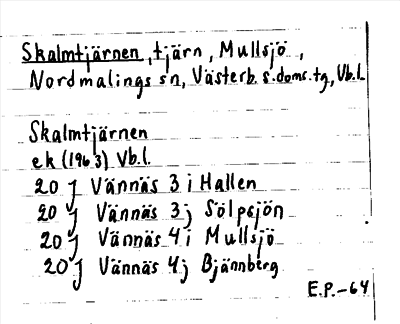 Skalmtjärnen, tjärn, Mullsjö,
Nordmalings sn, Västerb. s. doms. tg, Vb.l.
Skalmtjärnen
ek (1963) Vb.l.
20 J Vännäs 3 i Hallen
20 J Vännäs 3 j Sölpsjön
20 J Vännäs 4 i Mullsjö
20 J Vännäs 4 j Bjännberg
E.P.-64